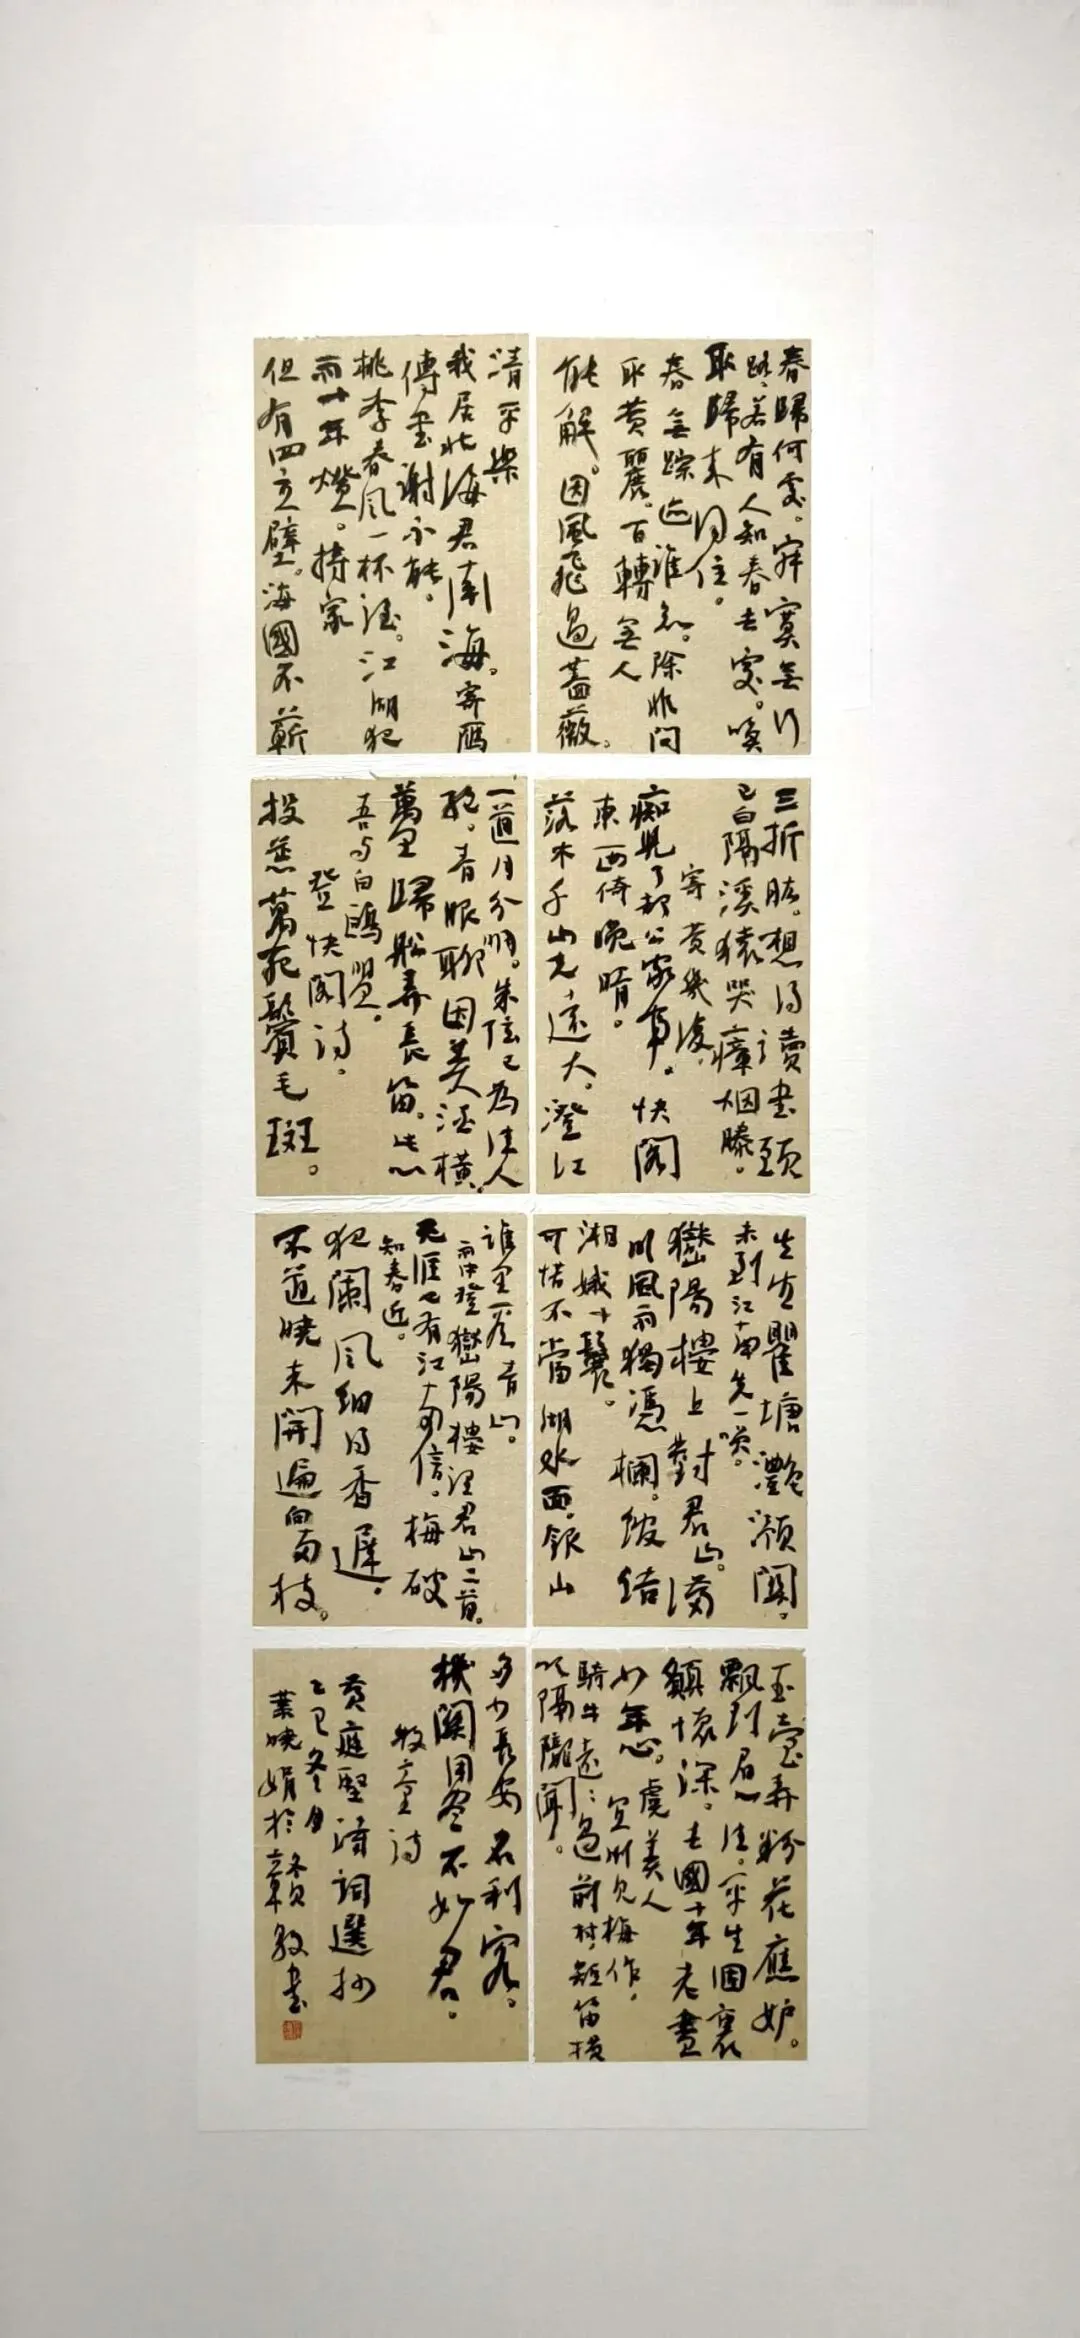 春歸何處。寂寞無行
路。若有人知春去處。喚
取歸來同住。
春無踪迹誰知。除非問
取黄鸝。百轉無人
能解。因風飛過薔薇。
清平樂
我居北海君南海。寄雁
傳書謝不能。
桃李春風一杯酒。江湖夜
雨十年燈。持家
但有四立壁。海國不蘄
三折肱。想得讀書頭
已白隔溪猿哭瘴烟滕。
寄黄幾復
痴兒了却公家事。快阁
東西倚晚晴。
落木千山天遠大。澄江
一道月分明。朱弦已為佳人
絶。青眼聊因美酒橫。
萬里歸船弄長笛。此心
吾與白鷗盟。
登快阁詩。
投荒萬死鬢毛斑。
生出瞿塘灧澦關。
未到江南先一笑。
嶽陽樓上對君山。满
川風雨獨憑欄。绾結
湘娥十鬟。
可惜不當湖水面。銀山
堆里看青山。
雨中登嶽陽樓望君山二首。
天涯也有江南信。梅破
知春近。
夜闌風細得香遲。
不道曉來開遍向南枝。
玉臺弄粉花應妒。
飄到眉心住。平生個裏
願懷深。去國十年老盡
少年心。虞美人
宜州見梅作。
騎牛遠遠過前村。短笛横
吹隔隴聞。
多少長安名利客。
機關用盡不如君。
牧童詩
黄庭堅詩詞選抄
乙巳冬月
葉曉娟於贛教書